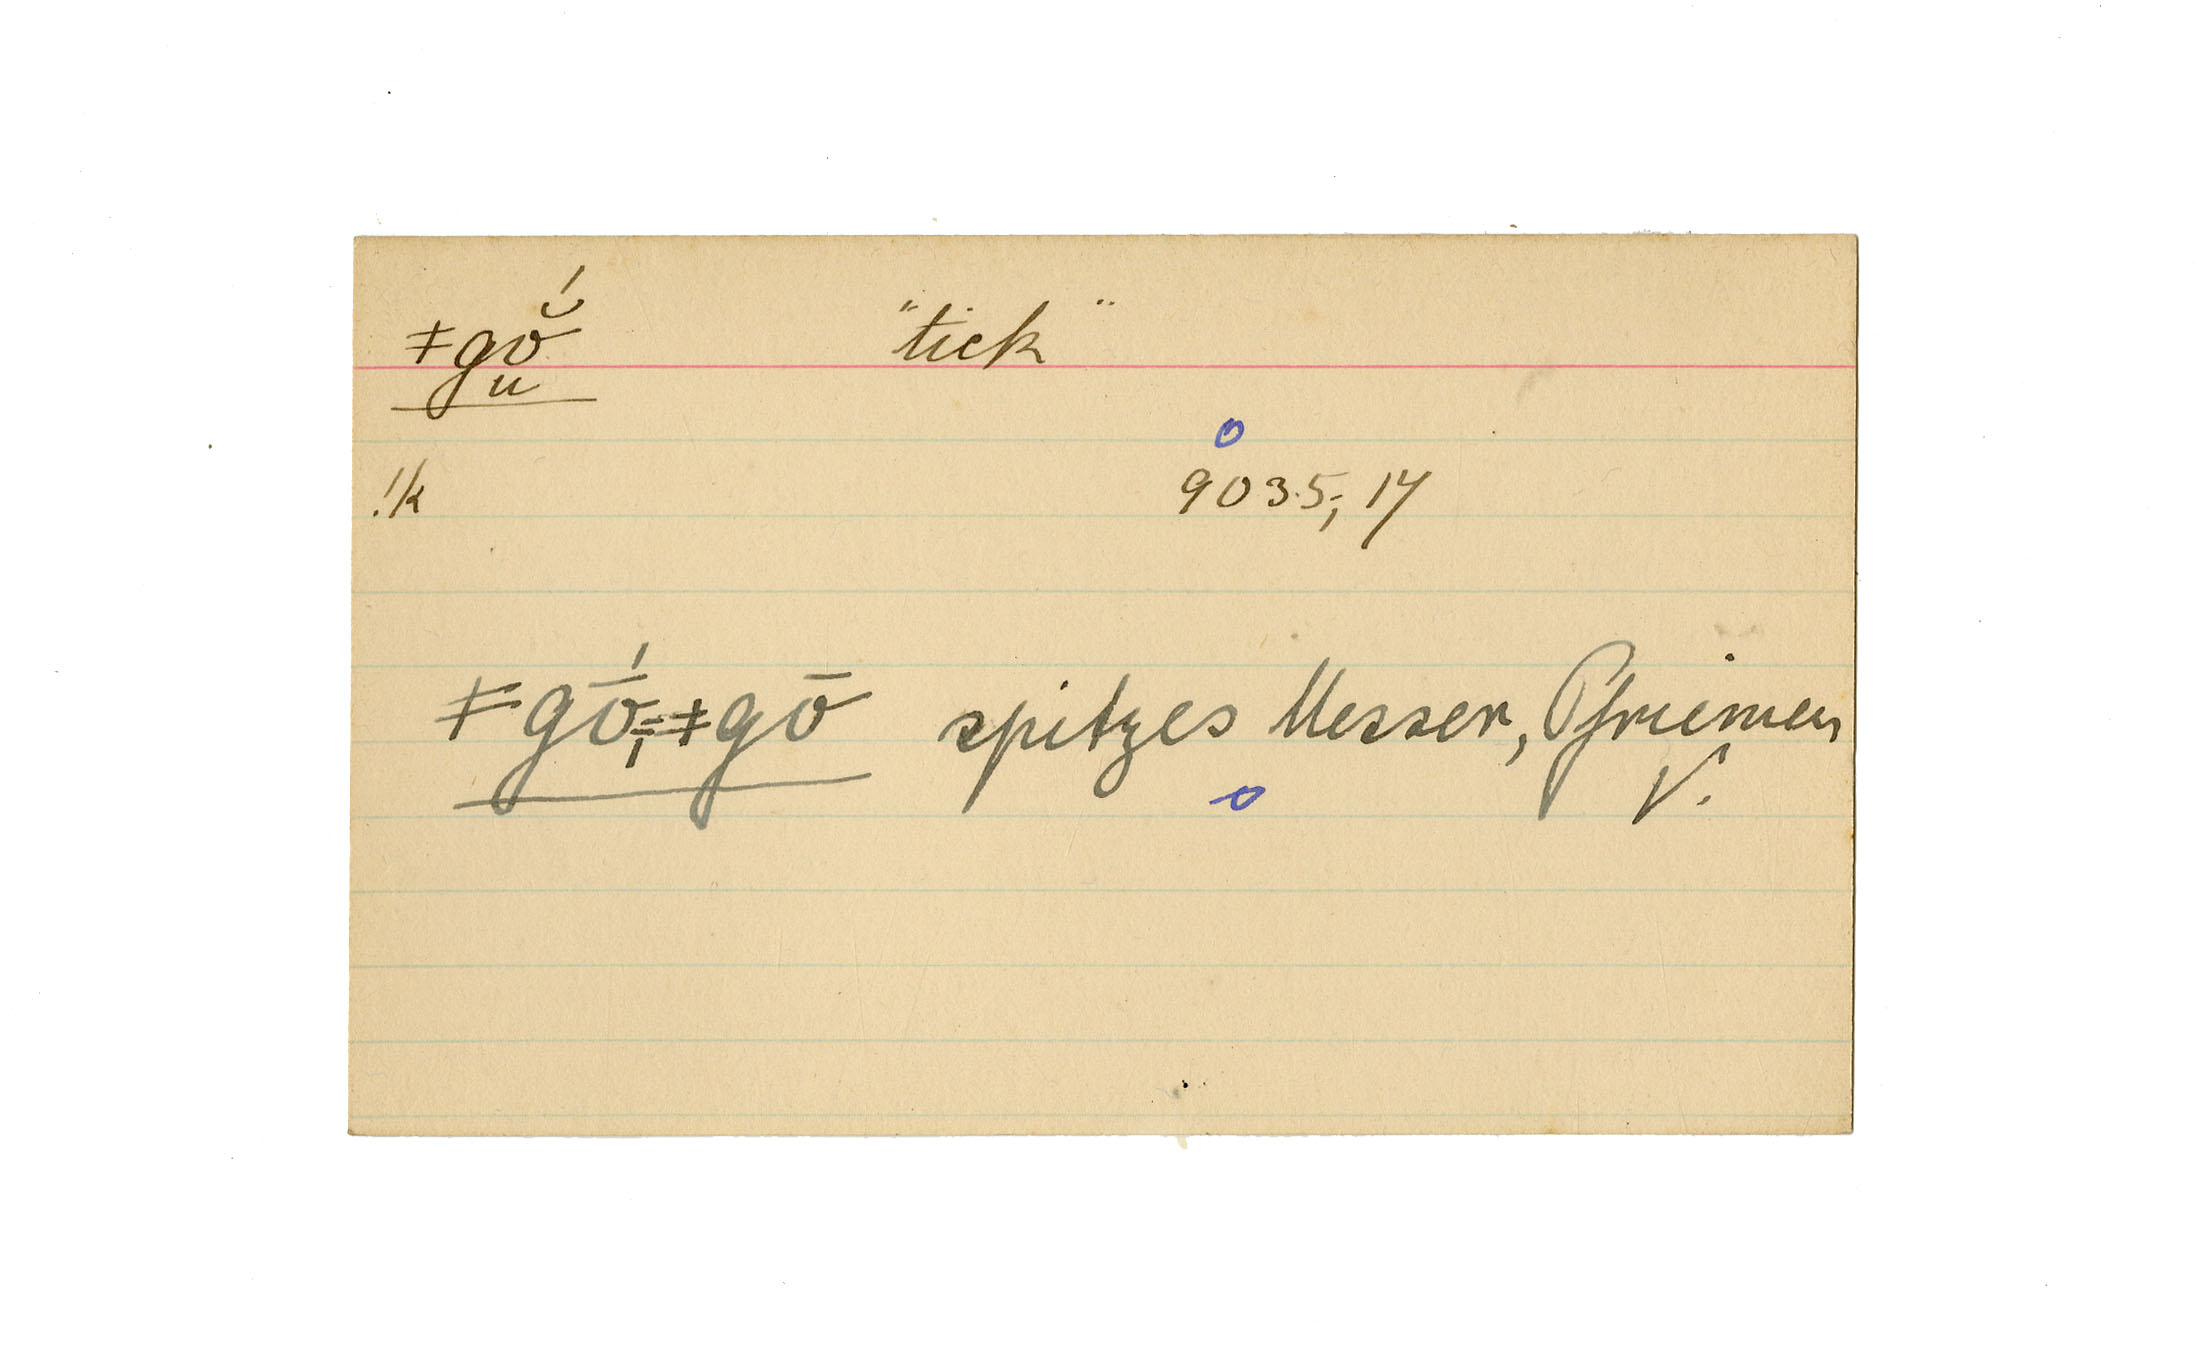 ǂgŏ́ "tick"
u
!k 9035, 17
ǂgṓ, ǂgō spitzes Messer, Pfriemen
V.